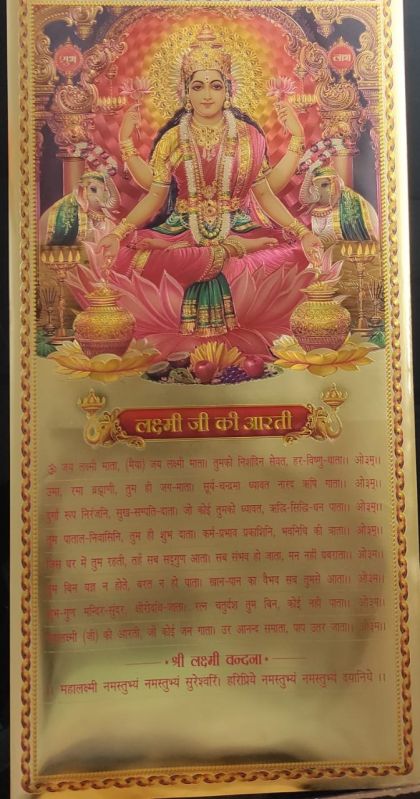 शुभ
लाभ
लक्ष्मी जी की आरती
ॐ जय लक्ष्मी माता, (मैया) जय लक्ष्मी माता। तुमको निशदिन सेवत, हर-विष्णु-धाता।। ओ३म्।।
उमा, रमा ब्रह्माणी, तुम ही जग-माता। सूर्य-चन्द्रमा ध्यावत नारद ऋषि गाता।। ओ३म्।।
दुर्गा रूप निरंजनि, सुख-सम्पति-दाता। जो कोई तुमको ध्यावत, ऋद्धि-सिद्धि-धन पाता।। ओ३म्।।
तुम पाताल-निवासिनि, तुम ही शुभ दाता। कर्म-प्रभाव प्रकाशिनि, भवनिधि की त्राता।। ओ३म्।।
जिस घर में तुम रहती, तहँ सब सद्गुण आता। सब संभव हो जाता, मन नहीं घबराता।। ओ३म्।।
तुम बिन यज्ञ न होते, बरत न हो पाता। खान-पान का वैभव सब तुमसे आता।। ओ३म्।।
शुभ-गुण मन्दिर-सुंदर, क्षीरोदधि-जाता। रत्न चतुर्दश तुम बिन, कोई नहीं पाता।। ओ३म्।।
महालक्ष्मी (जी) की आरती, जो कोई जन गाता। उर आनन्द समाता, पाप उतर जाता।। ओ३म्।।
श्री लक्ष्मी वन्दना
।। महालक्ष्मी नमस्तुभ्यं नमस्तुभ्यं सुरेश्वरि। हरिप्रिये नमस्तुभ्यं नमस्तुभ्यं दयानिधे ।।